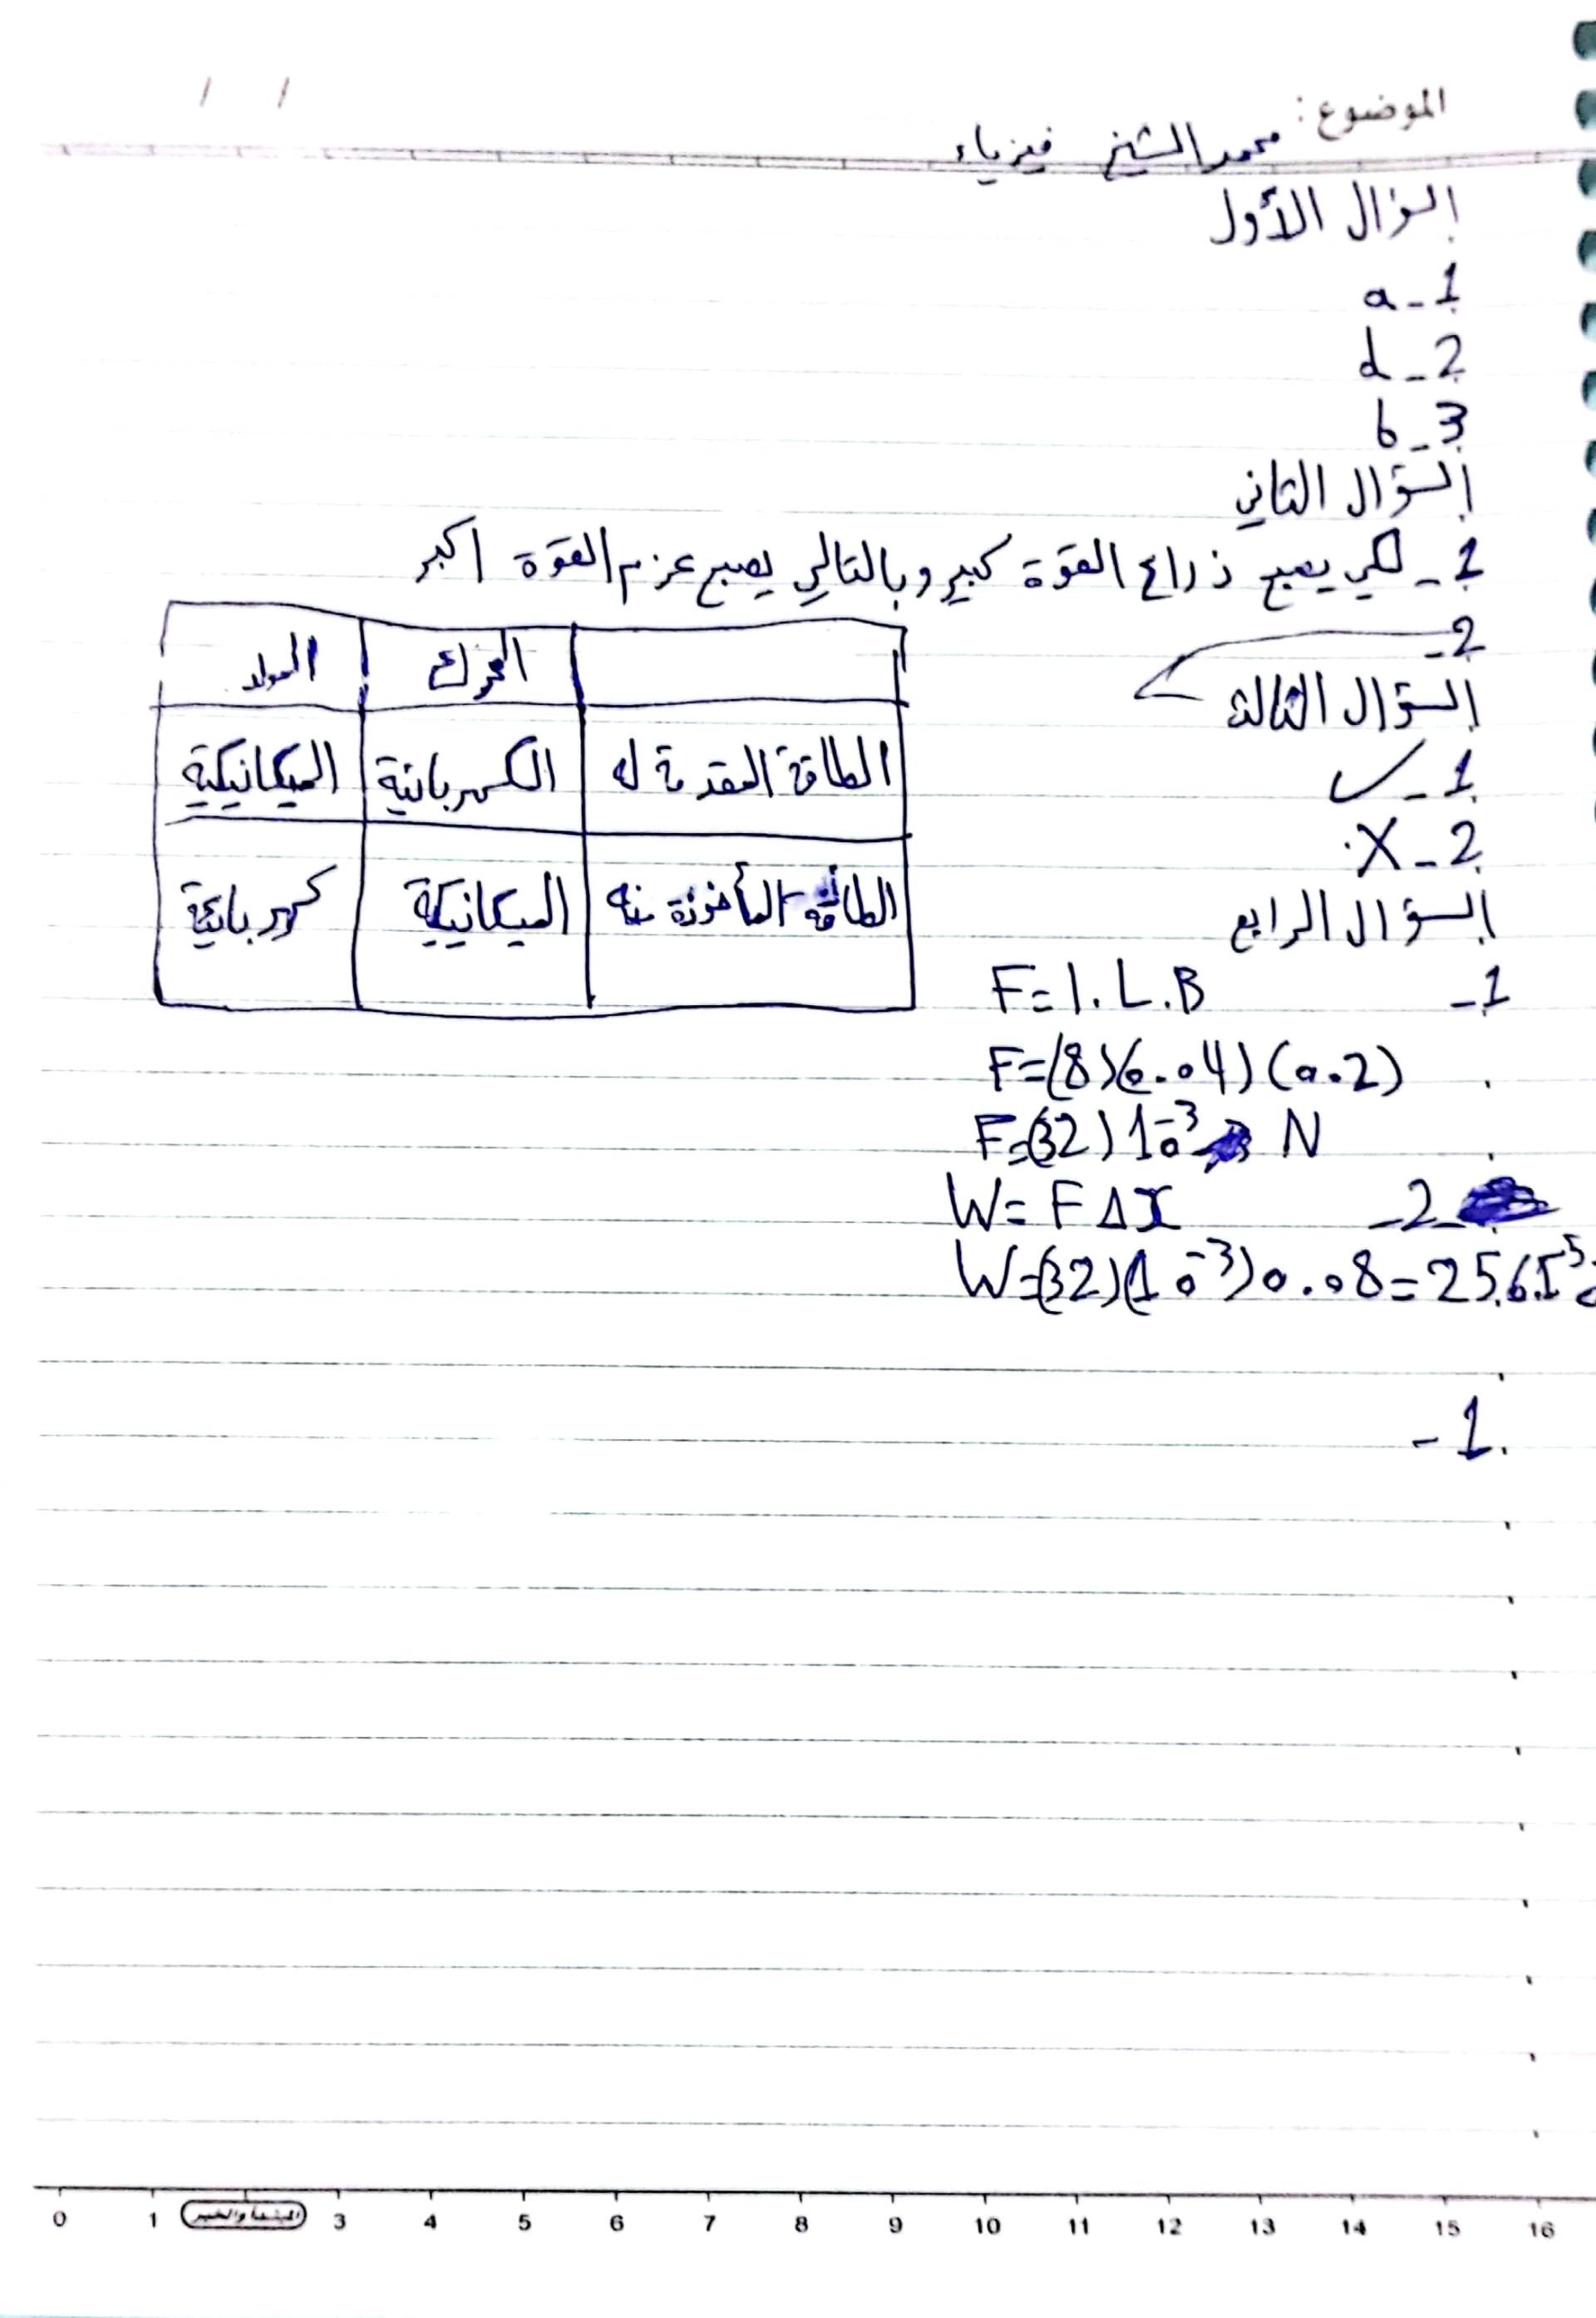 الموضوع: محمد الشيخ فيزياء
/ /
السؤال الأول
1_ a
2_ d
3_ b
السؤال الثاني
1_ لكي يصبح ذراع القوة كبير وبالتالي يصبح عزم القوة اكبر
2_
المحرك المولد
الطاقة المقدمة له الكهربائية الميكانيكية
الطاقة المأخوذة منه الميكانيكية كهربائية
السؤال الثالث
1_ ✓
2_ X
السؤال الرابع
1_ F=I.L.B
F=(8)(0.04)(0.2)
F=(32)10⁻³ N
2_ W=FΔx
W=(32)(10⁻³)0.08=25.6
1_
0 1 3 4 5 6 7 8 9 10 11 12 13 14 15 16